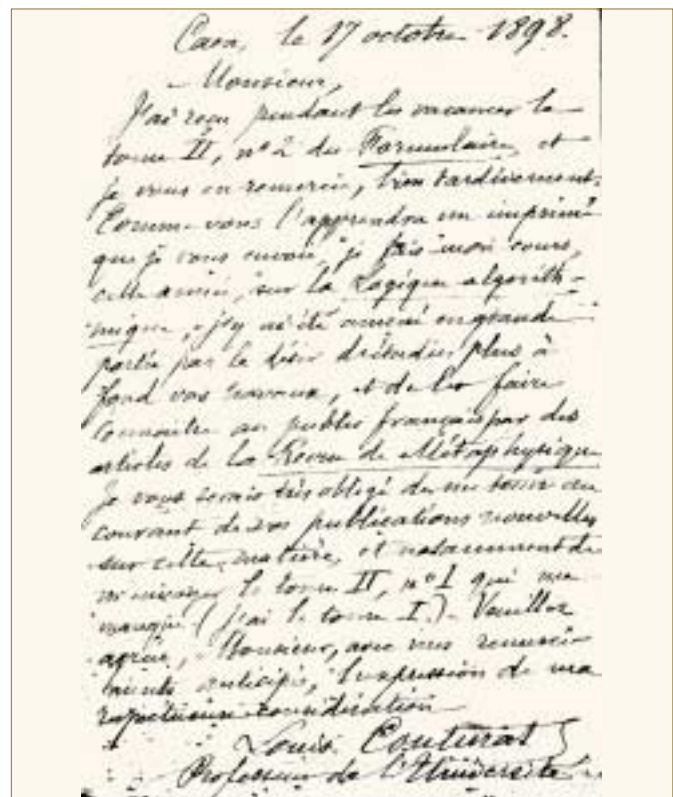 Caen, le 17 octobre 1898.
Monsieur,
J'ai reçu pendant les vacances le
tome II, n° 2 du Formulaire, et
je vous en remercie, bien tardivement.
Comme vous l'apprendra un imprimé
que je vous envoie, je fais mon cours,
cette année, sur la Logique algorith-
mique, j'y ai été amené en grande
partie par le désir d'étudier plus à
fond vos travaux, et de les faire
connaître au public français par des
articles de la Revue de Métaphysique
Je vous serais très obligé de me tenir au
courant de vos publications nouvelles
sur cette matière, et notamment de
m'envoyer le tome II, n° 1 qui me
manque (j'ai le tome I.). Veuillez
agréer, Monsieur, avec mes remercie-
ments anticipés, l'expression de ma
respectueuse considération
Louis Couturat
Professeur de l'Université